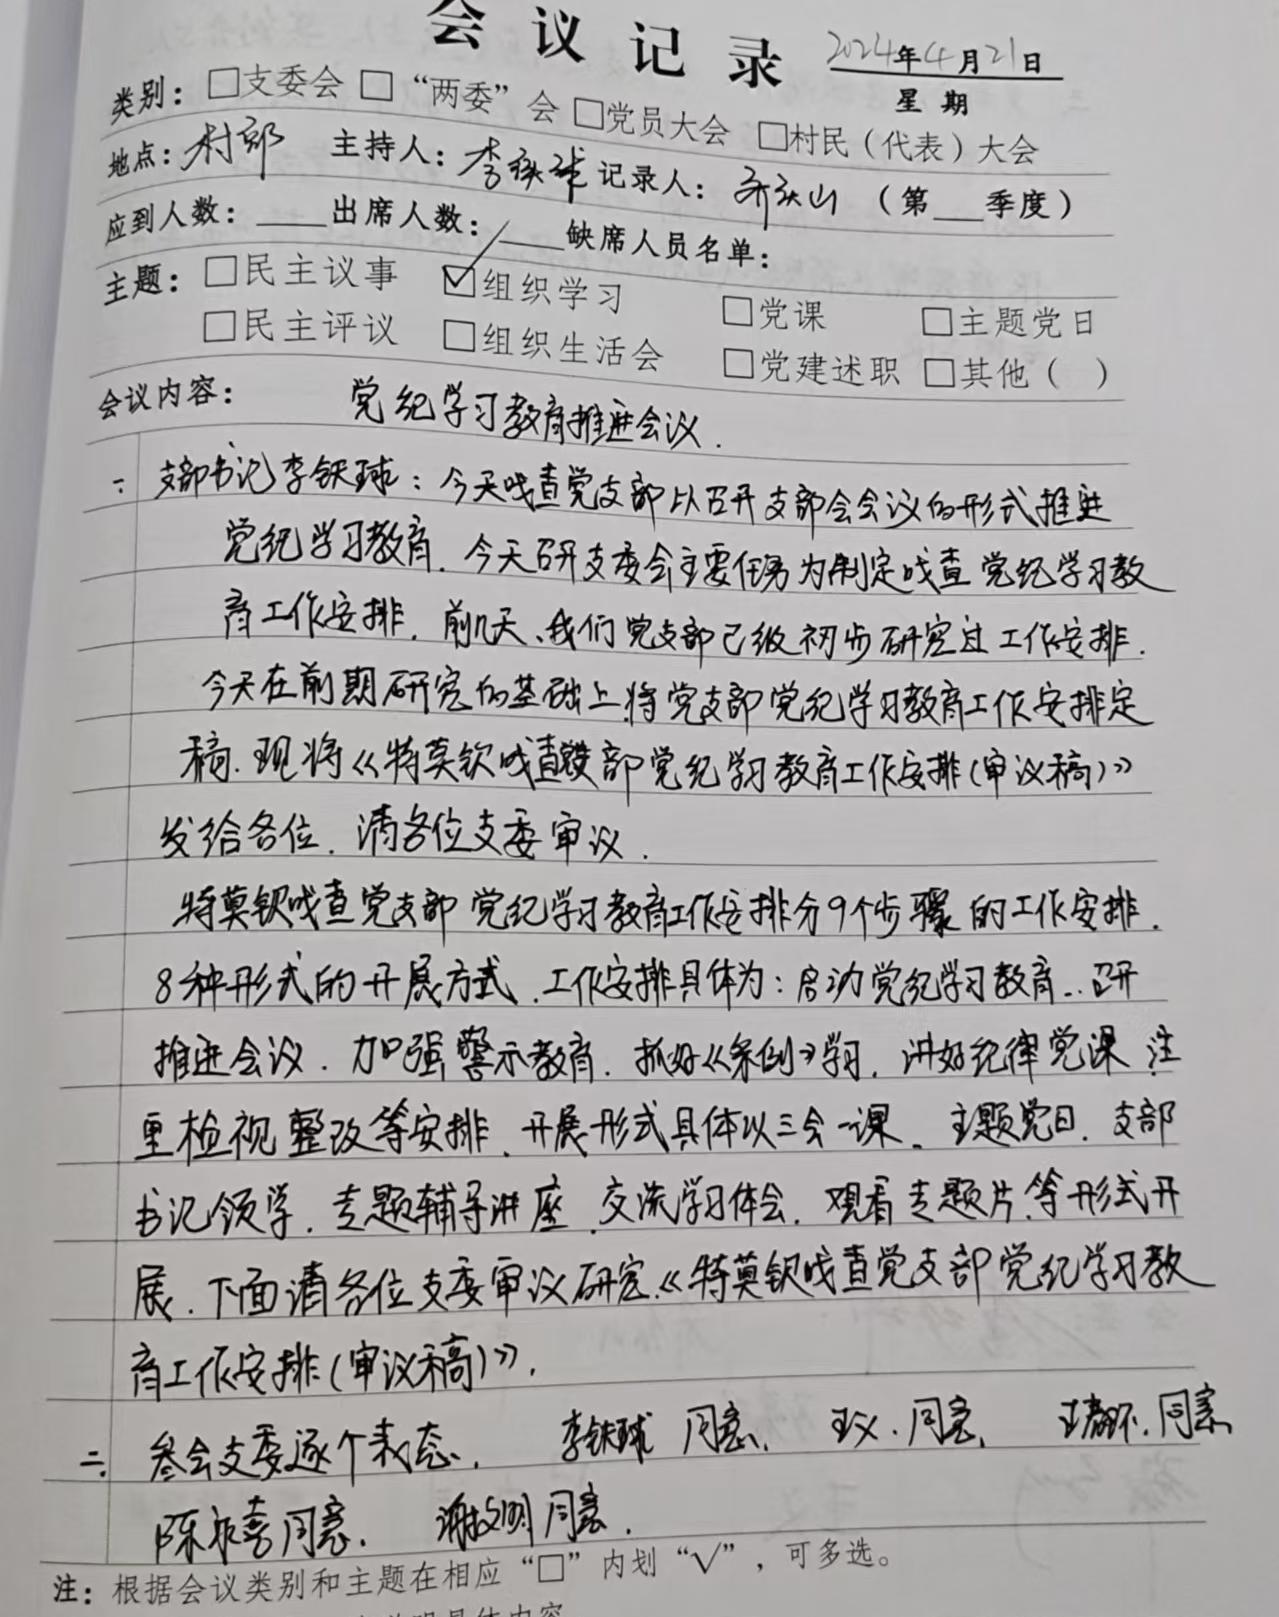 会议记录 2024年4月21日
星期
类别：□支委会 □“两委”会 □党员大会 □村民（代表）大会
地点：村部 主持人：李铁球 记录人：乔庆山 （第___季度）
应到人数：____ 出席人数：____ 缺席人员名单：
主题：□民主议事 ☑组织学习 □党课 □主题党日
□民主评议 □组织生活会 □党建述职 □其他（ ）
会议内容： 党纪学习教育推进会议.
一、支部书记李铁球：今天哉查党支部以召开支部会会议的形式推进
党纪学习教育. 今天召开支委会主要任务为制定哉查党纪学习教
育工作安排. 前几天、我们党支部已级初步研究过工作安排.
今天在前期研究的基础上.将党支部党纪学习教育工作安排定
稿. 现将《特莫钦哉查 部党纪学习教育工作安排(审议稿)》
发给各位. 请各位支委审议.
特莫钦哉查党支部党纪学习教育工作安排分9个步骤的工作安排.
8种形式的开展方式.工作安排具体为：启动党纪学习教育..召开
推进会议. 加强警示教育. 抓好《条例》学习. 讲好纪律党课 注
重检视整改等安排. 开展形式具体以三会一课. 主题党日. 支部
书记领学. 专题辅导讲座. 交流学习体会. 观看专题片.等形式开
展. 下面请各位支委审议研究.《特莫钦哉查党支部党纪学习教
育工作安排(审议稿)》.
二. 参会支委逐个表态. 李铁球 同意. 王义.同意. 同意
陈永喜同意. 谢文明同意.
注：根据会议类别和主题在相应“□”内划“√”，可多选。